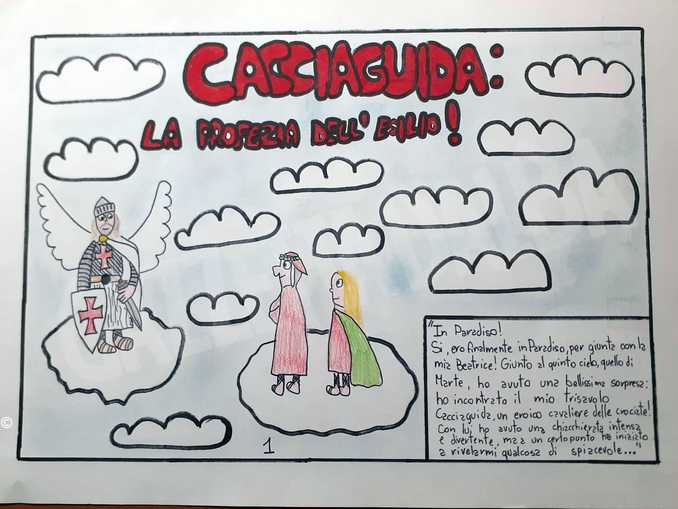 CACCIAGUIDA:
LA PROFEZIA DELL' ESILIO!
"In Paradiso!
Si, ero finalmente in Paradiso, per giunta con la
mia Beatrice! Giunto al quinto cielo, quello di
Marte, ho avuto una bellissima sorpresa:
ho incontrato il mio trisavolo
Cacciaguida, un eroico cavaliere delle crociate!
Con lui ho avuto una chiacchierata intensa
e divertente, ma a un certo punto ha iniziato
a rivelarmi qualcosa di spiacevole..."
1
©